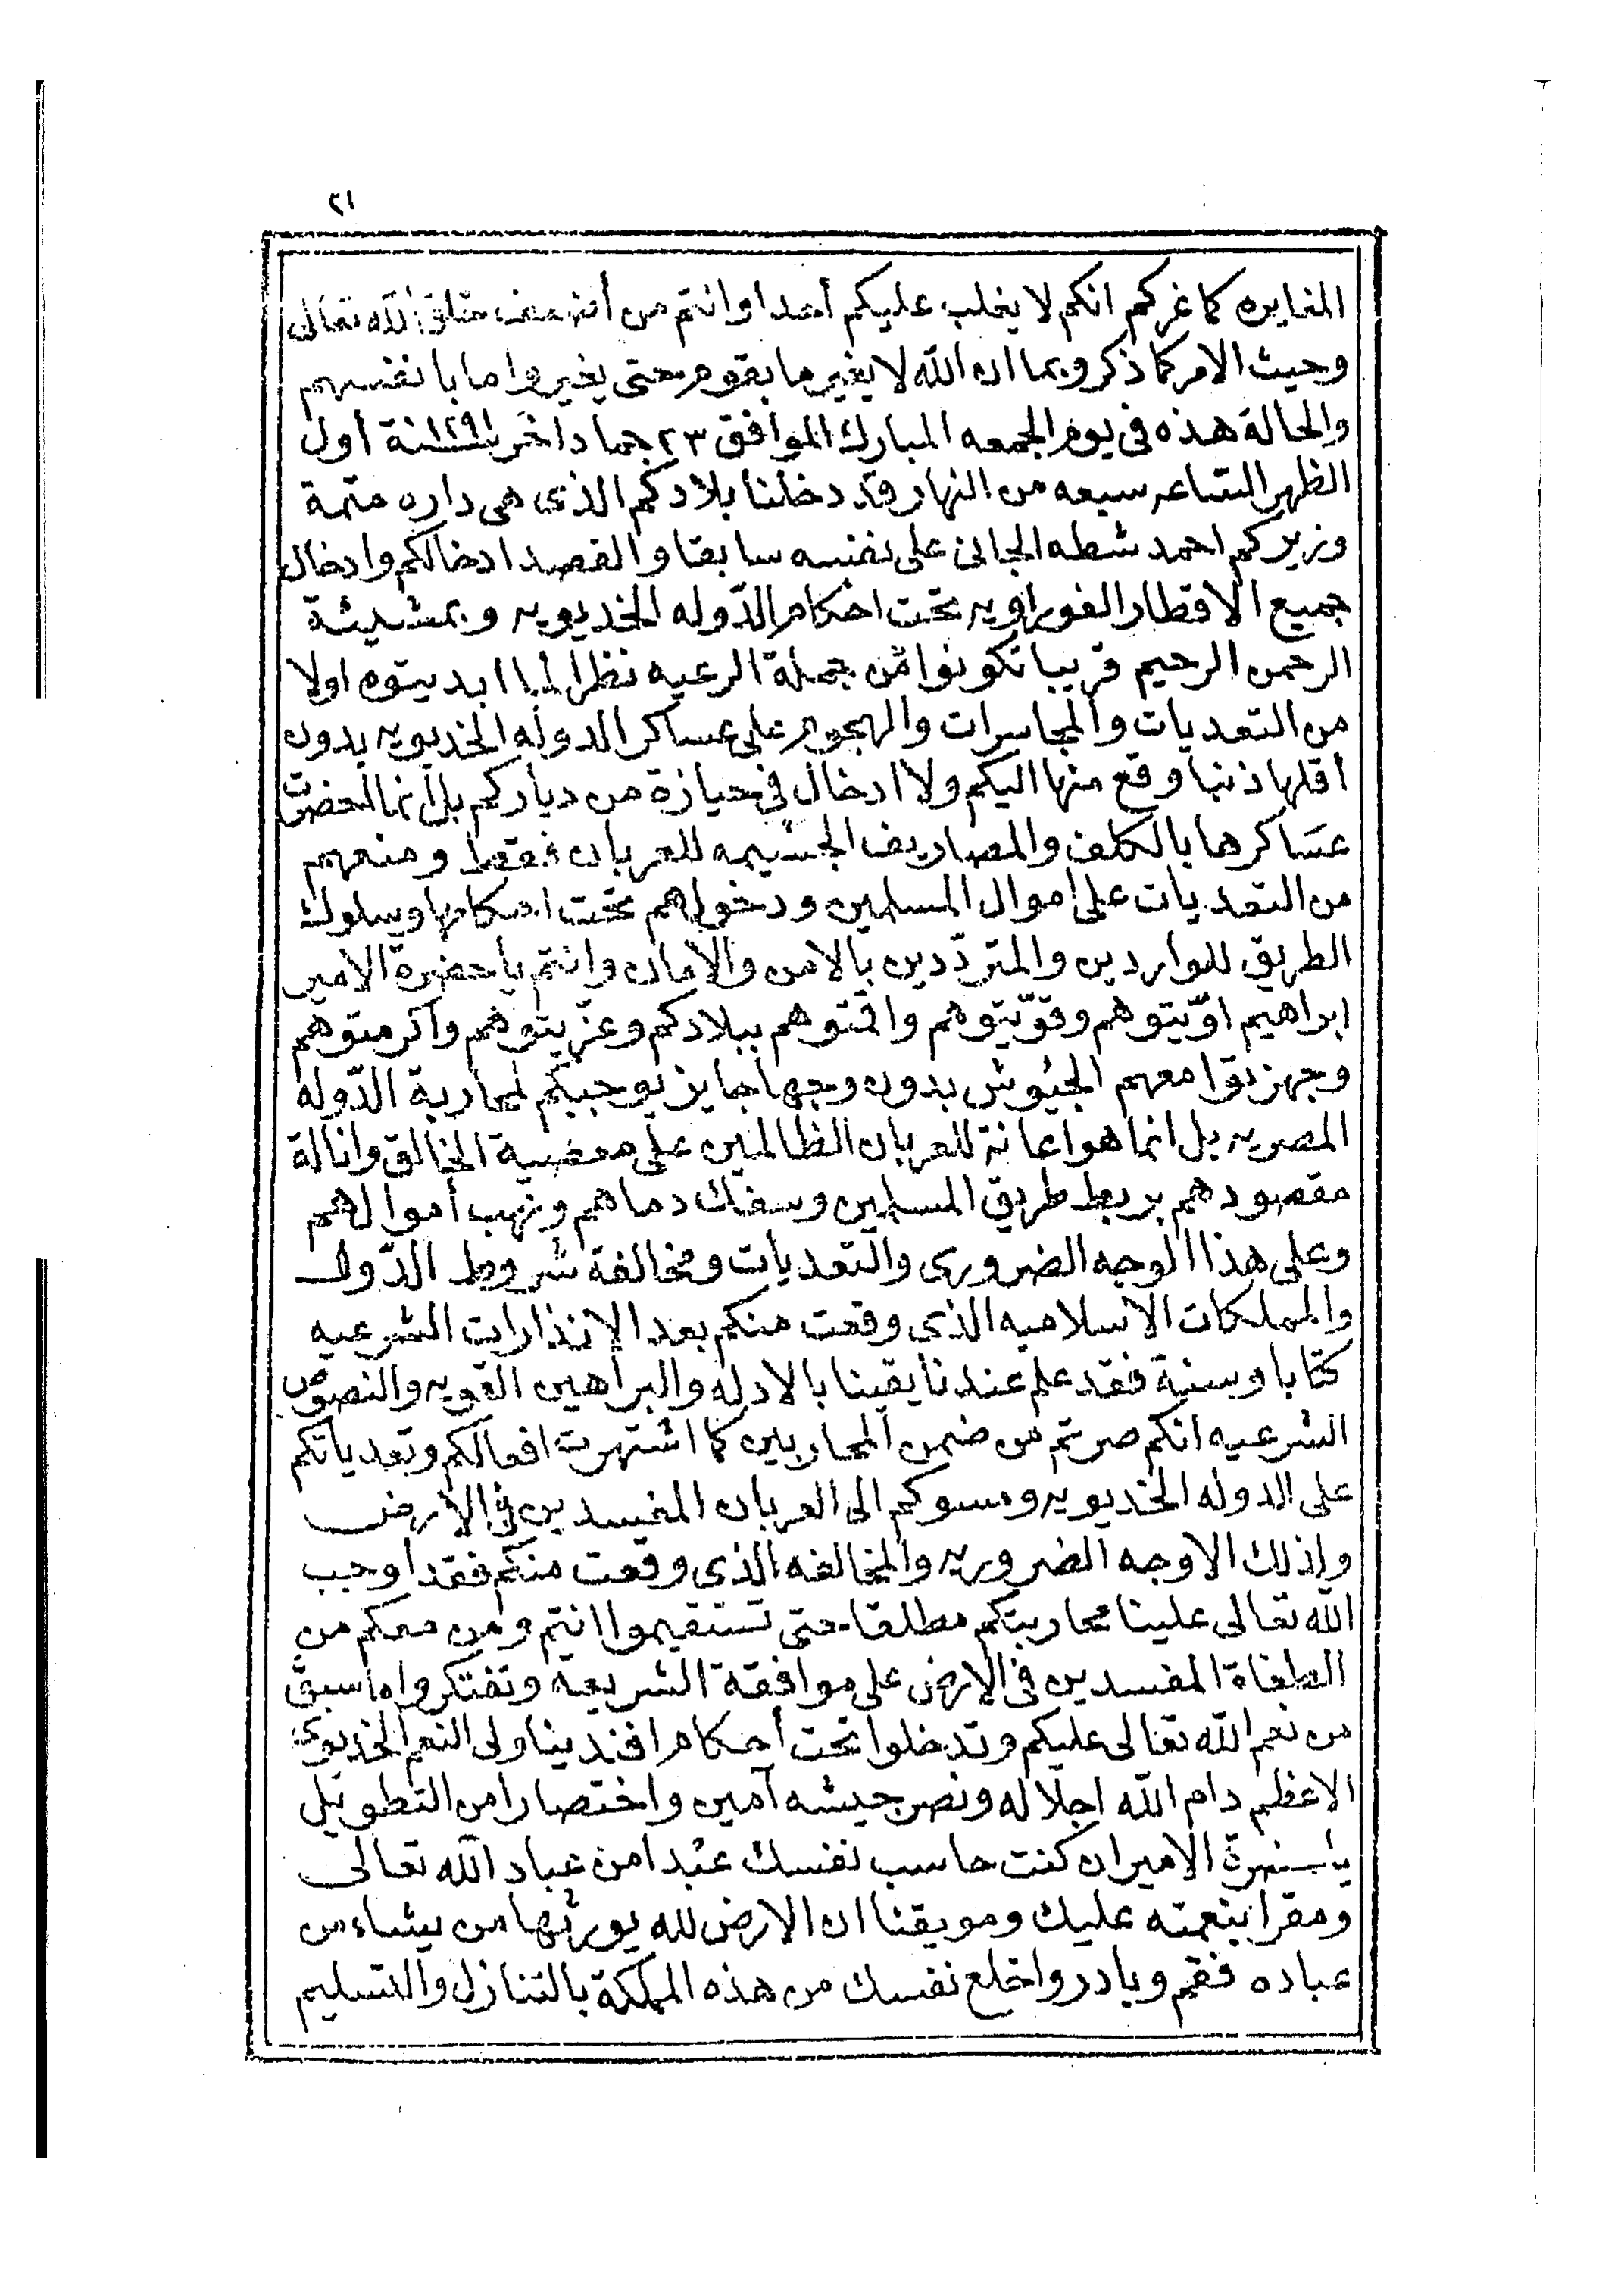 ٢١
المغايره كما غركم انكم لا يغلب عليكم أحدا وانتم من أضعف خلق الله تعالى
وحيث الامر كما ذكر وبما ان الله لا يغير ما بقوم حتى يغيروا ما بانفسهم
والحالة هذه فى يوم الجمعه المبارك الموافق ٢٣ جماد اخر سنة ١٢٩١ أول
الظهر الساعه سبعه من النهار قد دخلنا بلادكم الذى هى داره متمة
وزيركم احمد شطه الجانى على نفسه سابقا والقصد ادخالكم وادخال
جميع الاقطار الفوراويه تحت احكام الدّوله الخديويه وبمشيئة
الرحمن الرحيم قريبا تكونوا من جملة الرعيه نظرا لما ابديتوه اولا
من التعديات والمجاسرات والهجوم على عساكر الدوله الخديويه بدون
أقلها ذنبا وقع منها اليكم ولا ادخال فى حيازة من دياركم بل انما الحضرت
عسَاكرها بالكلف والمصاريف الجسيمه للعربان فقط ومنعهم
من التعديات على اموال المسلمين ودخولهم تحت احكامها وسلوك
الطريق للواردين والمتردّدين بالامن والامان وانتم يا حضرة الامير
ابراهيم اوّيتوهم وقوّيتوهم واقمتوهم ببلادكم وعزّيتوهم واكرمتوهم
وجهزتوا معهم الجيُوش بدون وجها جايز يوجبكم لمحاربة الدّوله
المصريه بل انما هو اعانة للعربان الظالمين على معصية الخالق وانالة
مقصودهم بربط طريق المسلمين وسفك دماهم ونهب أموالهم
وعلى هذا الوجه الضرورى والتعديات ومخالفة شروط الدّول
والمملكات الاسلاميه الذى وقعت منكم بعد الانذارات الشرعيه
كتابا وسنة فقد علم عندنا يقينا بالادله والبراهين القويه والنصوص
الشرعيه انكم صرتم من ضمن المحاربين كما اشتهرت افعالكم وتعدياتكم
على الدوله الخديويه ومسوكم الى العربان المفسدين فى الارض
ولذلك الاوجه الضروريه والمخالفه الذى وقعت منكم فقد اوجب
الله تعالى علينا محاربتكم مطلقا حتى تستقيموا انتم ومن معكم من
الطغاة المفسدين فى الارض على موافقة الشريعة وتفتكروا ما سبق
من نعم الله تعالى عليكم وتدخلوا تحت أحكام افندينا ولى النعم الخديوى
الاعظم دام الله اجلاله ونصر جيشه آمين واختصارا من التطويل
يا حضرة الامير ان كنت حاسب نفسك عبْدا من عباد الله تعالى
ومقرا بنعمته عليك وموقنا ان الارض لله يورثها من يشاء من
عباده فقم وبادر واخلع نفسك من هذه المملكة بالتنازل والتسليم